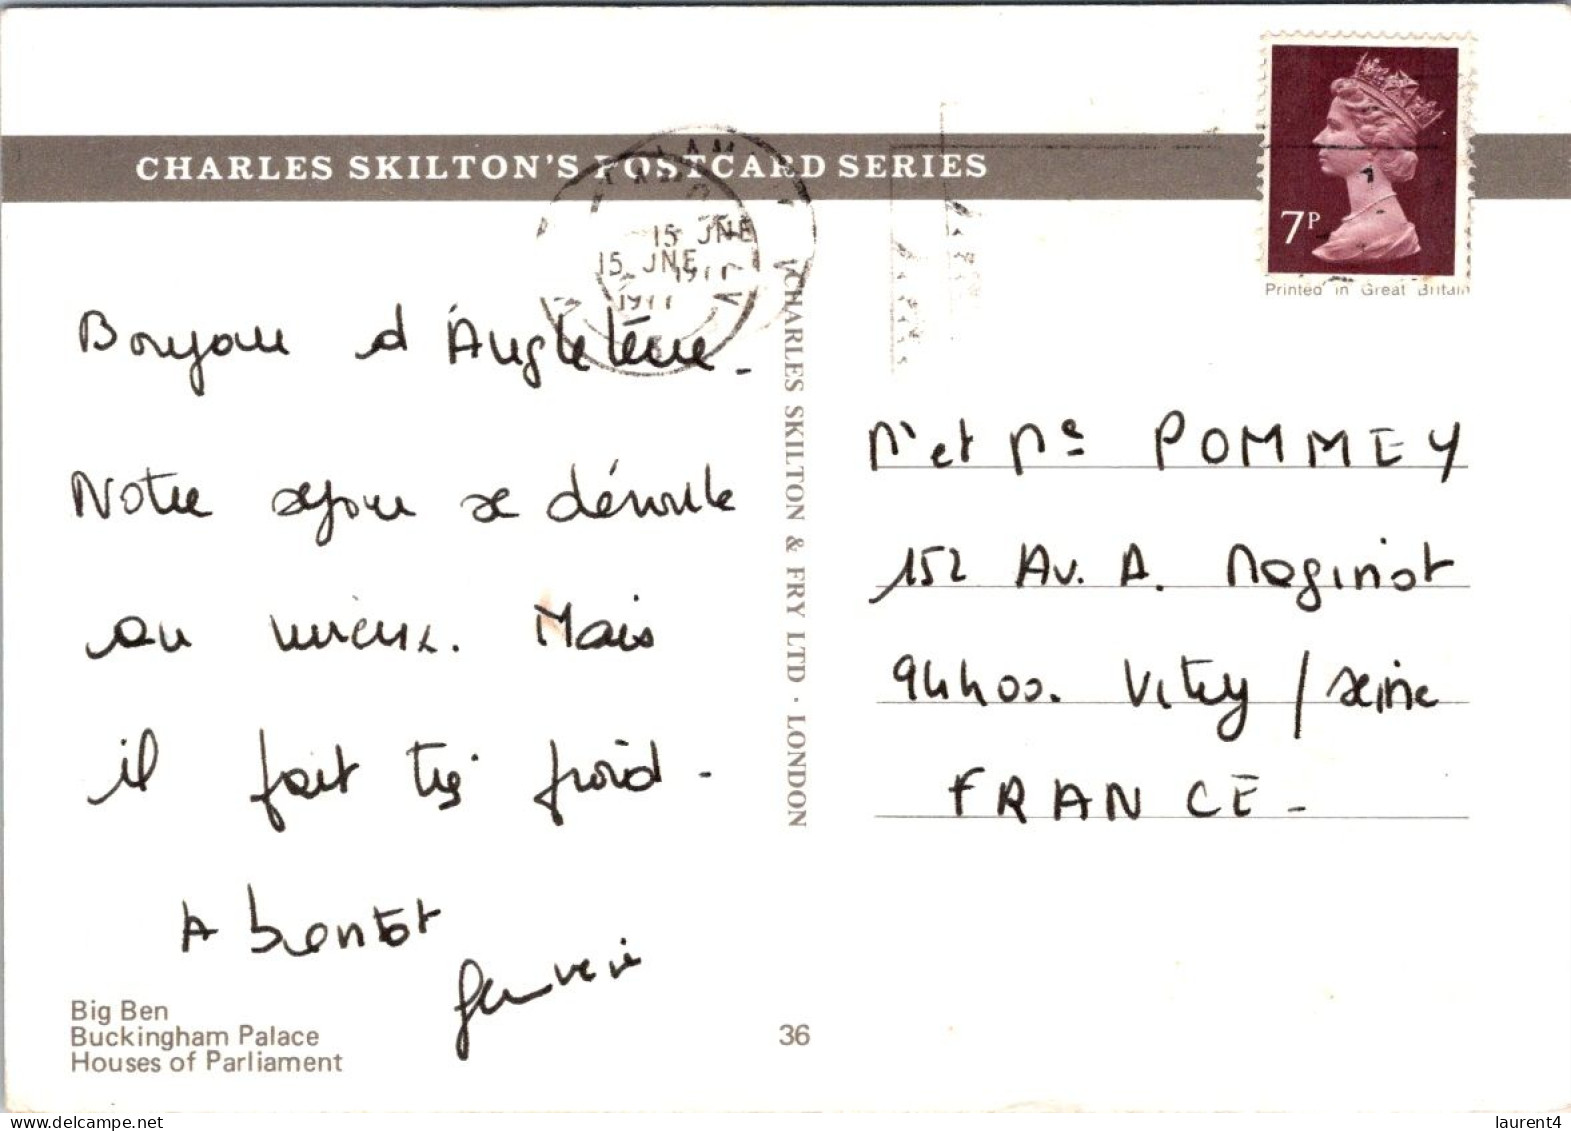 CHARLES SKILTON'S POSTCARD SERIES
15 JNE
1977
15 JNE
1977
7P
Printed in Great Britain
Bonjour d'Angleterre.
Notre séjour se déroule
au mieux. Mais
il fait très froid.
A bientôt
CHARLES SKILTON & FRY LTD · LONDON
Mr et Me POMMEY
152 Av. A. Maginot
94400. Vitry / seine
FRANCE -
Big Ben
Buckingham Palace
Houses of Parliament
36
delcampe.net
laurent4